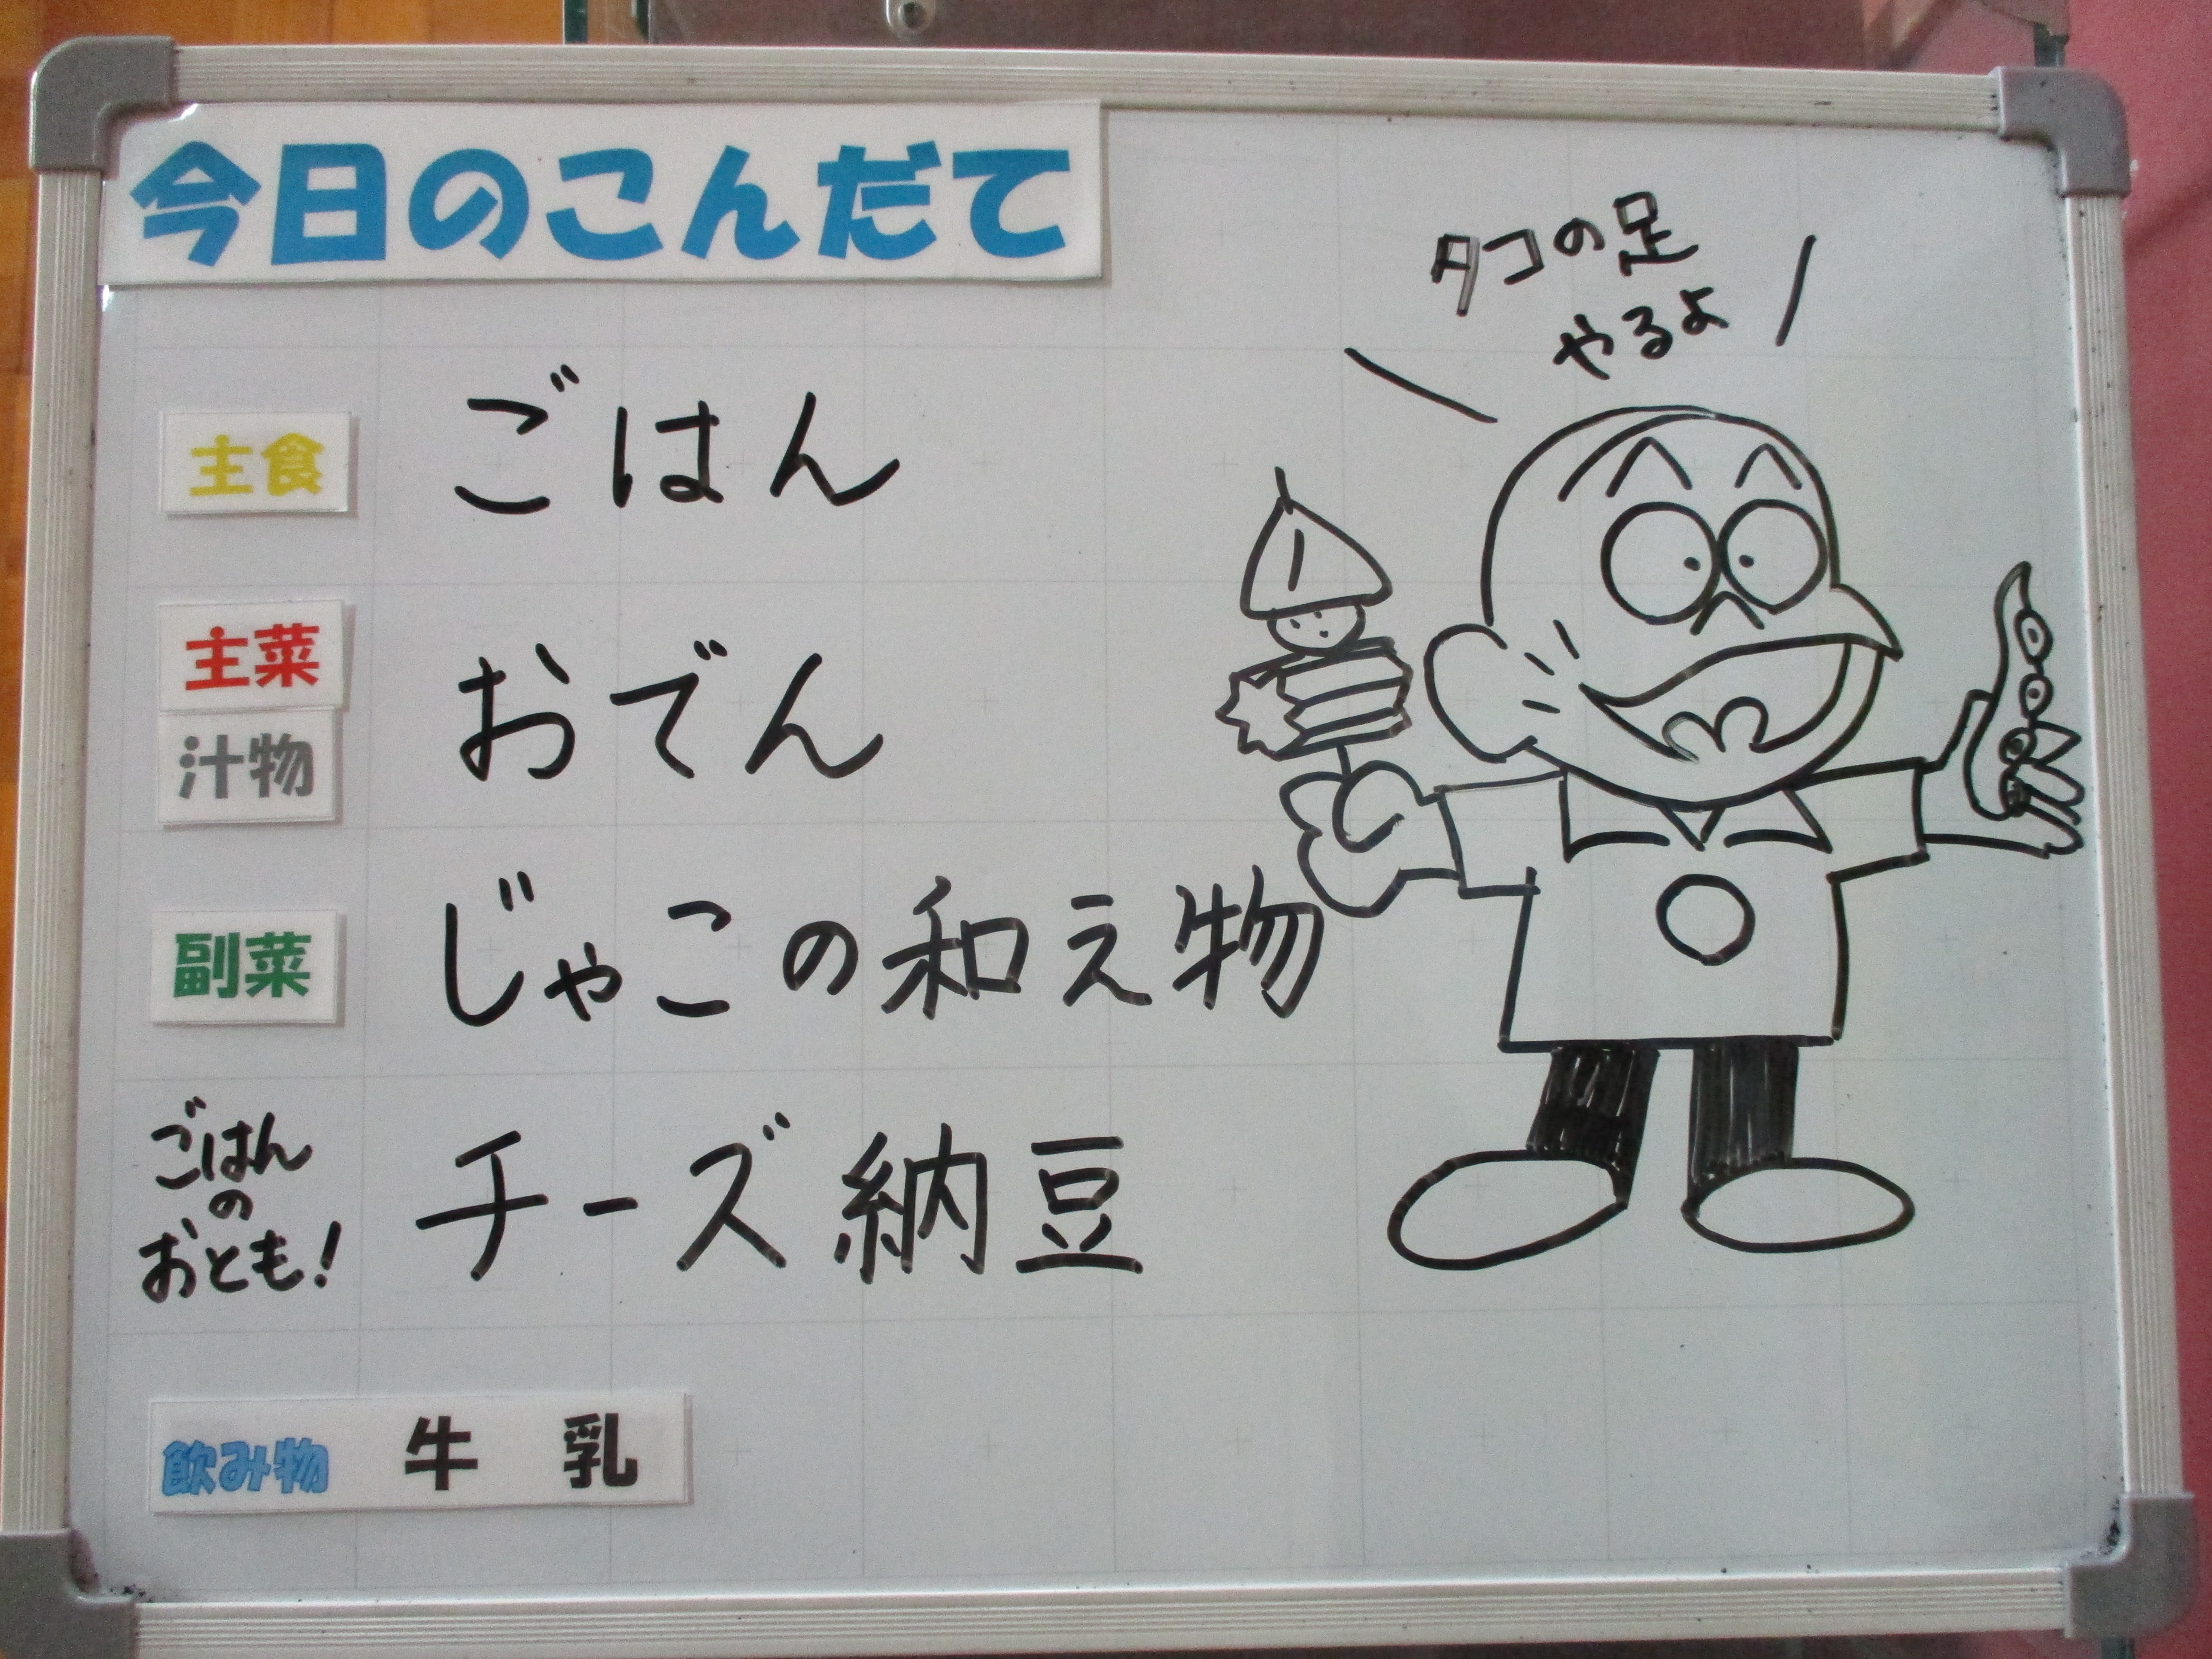 今日のこんだて
タコの足
やるよ
主食 ごはん
主菜
汁物 おでん
副菜 じゃこの和え物
ごはん
の
おとも! チーズ納豆
飲み物 牛乳